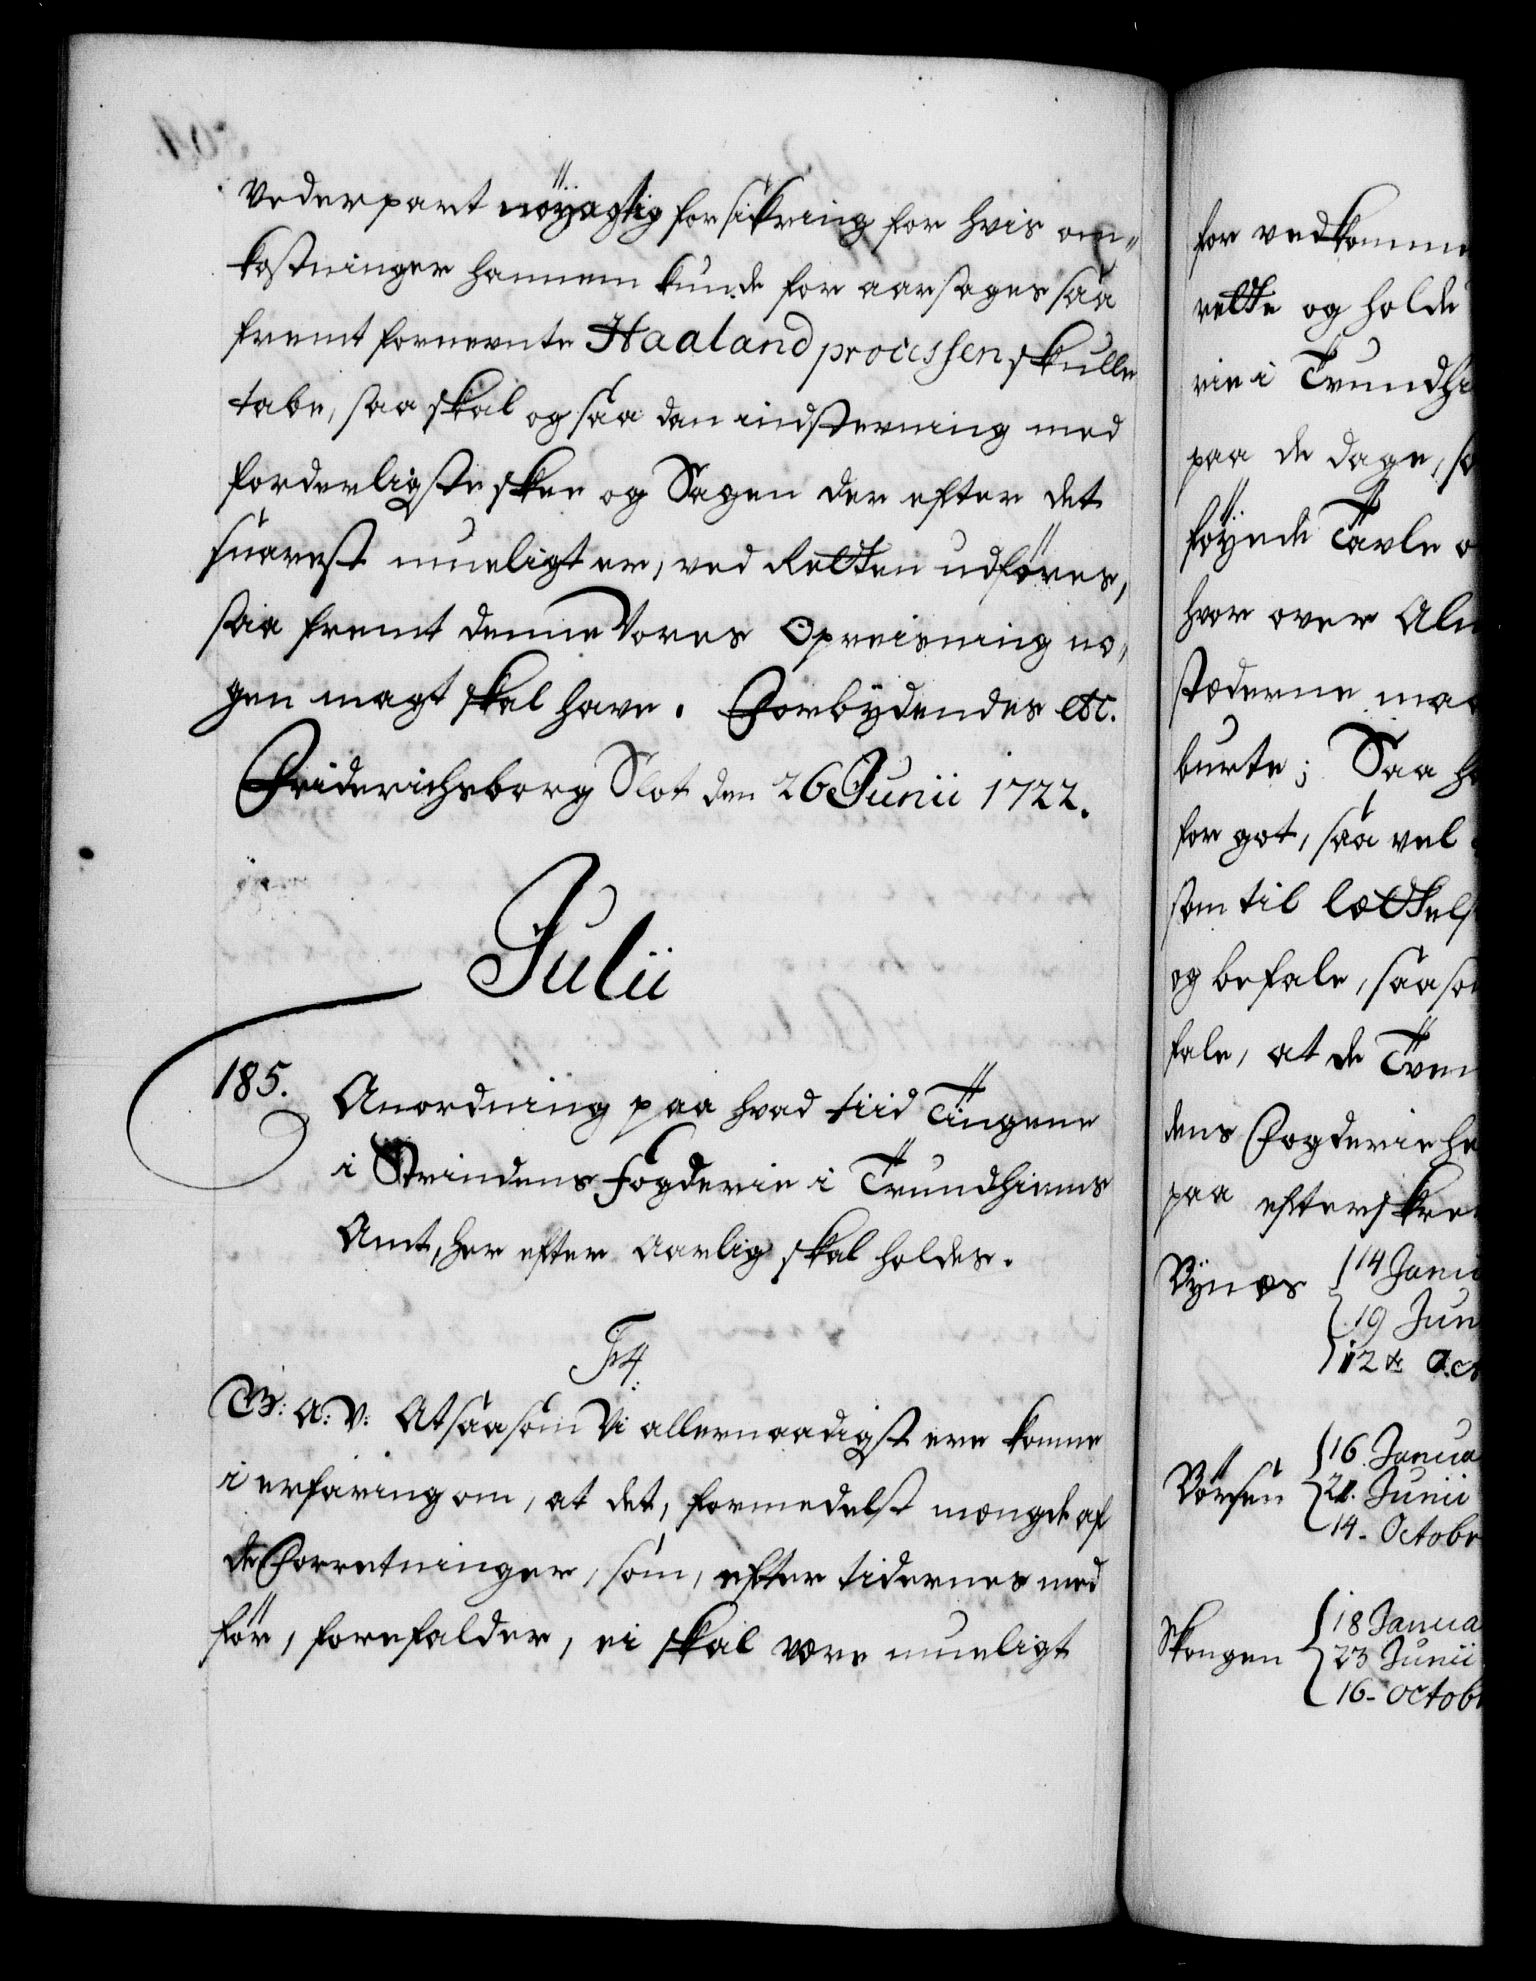 vederpart nöyagtig forsikring for hvis om-
kostninger hannem kunde foraarsages saa
fremt fornevnte Haaland processen skulle
tabe, saa skal og saa den indstevning med
forderligste skee og Sagen der efter det
snarest mueligt er, ved Retten udføres,
saa fremt denne Vores Opreisning no-
gen magt skal have. Forbydendes etc.
Friderichsborg Slot den 26 Junii 1722.
Julii
185.
Anordning paa hvad tiid Tingene
i Strindens fogderie i Trundhiems
Amt, her efter Aarlig skal holdes.
F4.
G: A: V: At saasom Vi allernaadigst ere komne
i erfaring om, at det, formedelst mengde af
de Forretninger, som, efter tidernes med
för, forefalder, ei skal være mueligt
for vedkomme
rette og holde
rie i Trundhi
paa de dage, so
föyede Tavle o
hvor over Alm
stæderne maa
burte; Saa ha
for got, saa vel
som til lettels
og befale, saaso
fale, at de Tven
dens Fogderie he
paa efterskre
Bynes 14 Janu
19 Jun
12 de Oct
Börsen 16 Janua
21. Junii
14. Octobr
Skougen 18 Janua
23 Junii
16. Octobr